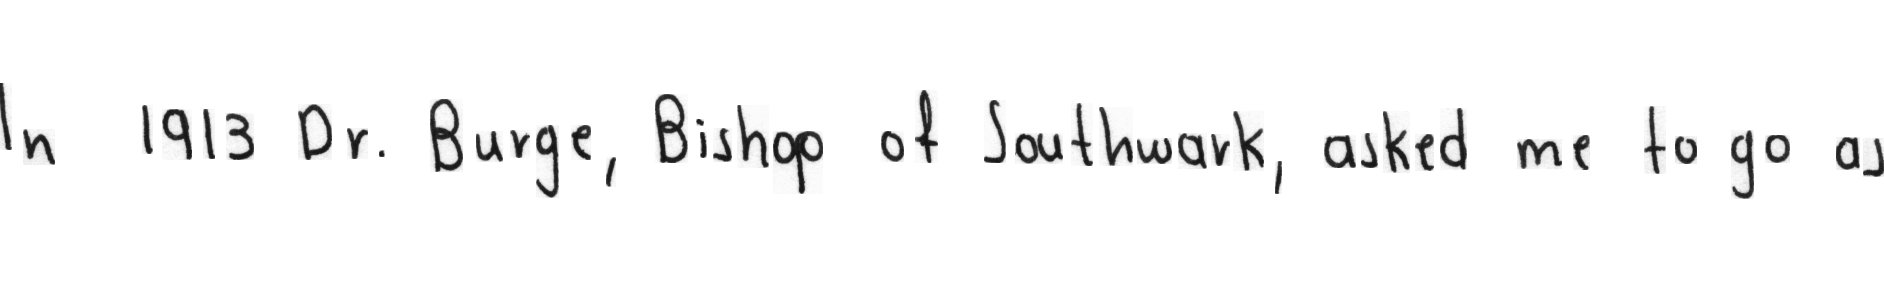 In 1913 Dr. Burge, Bishop of Southwark, asked me to go as